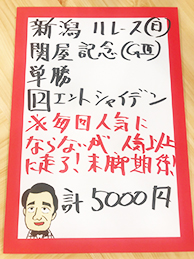 新潟 11レース(日)
関屋記念(GⅢ)
単勝
12エントシャイデン
※毎回人気に
ならないが人気以上
に走る!末脚期待!
計5000円